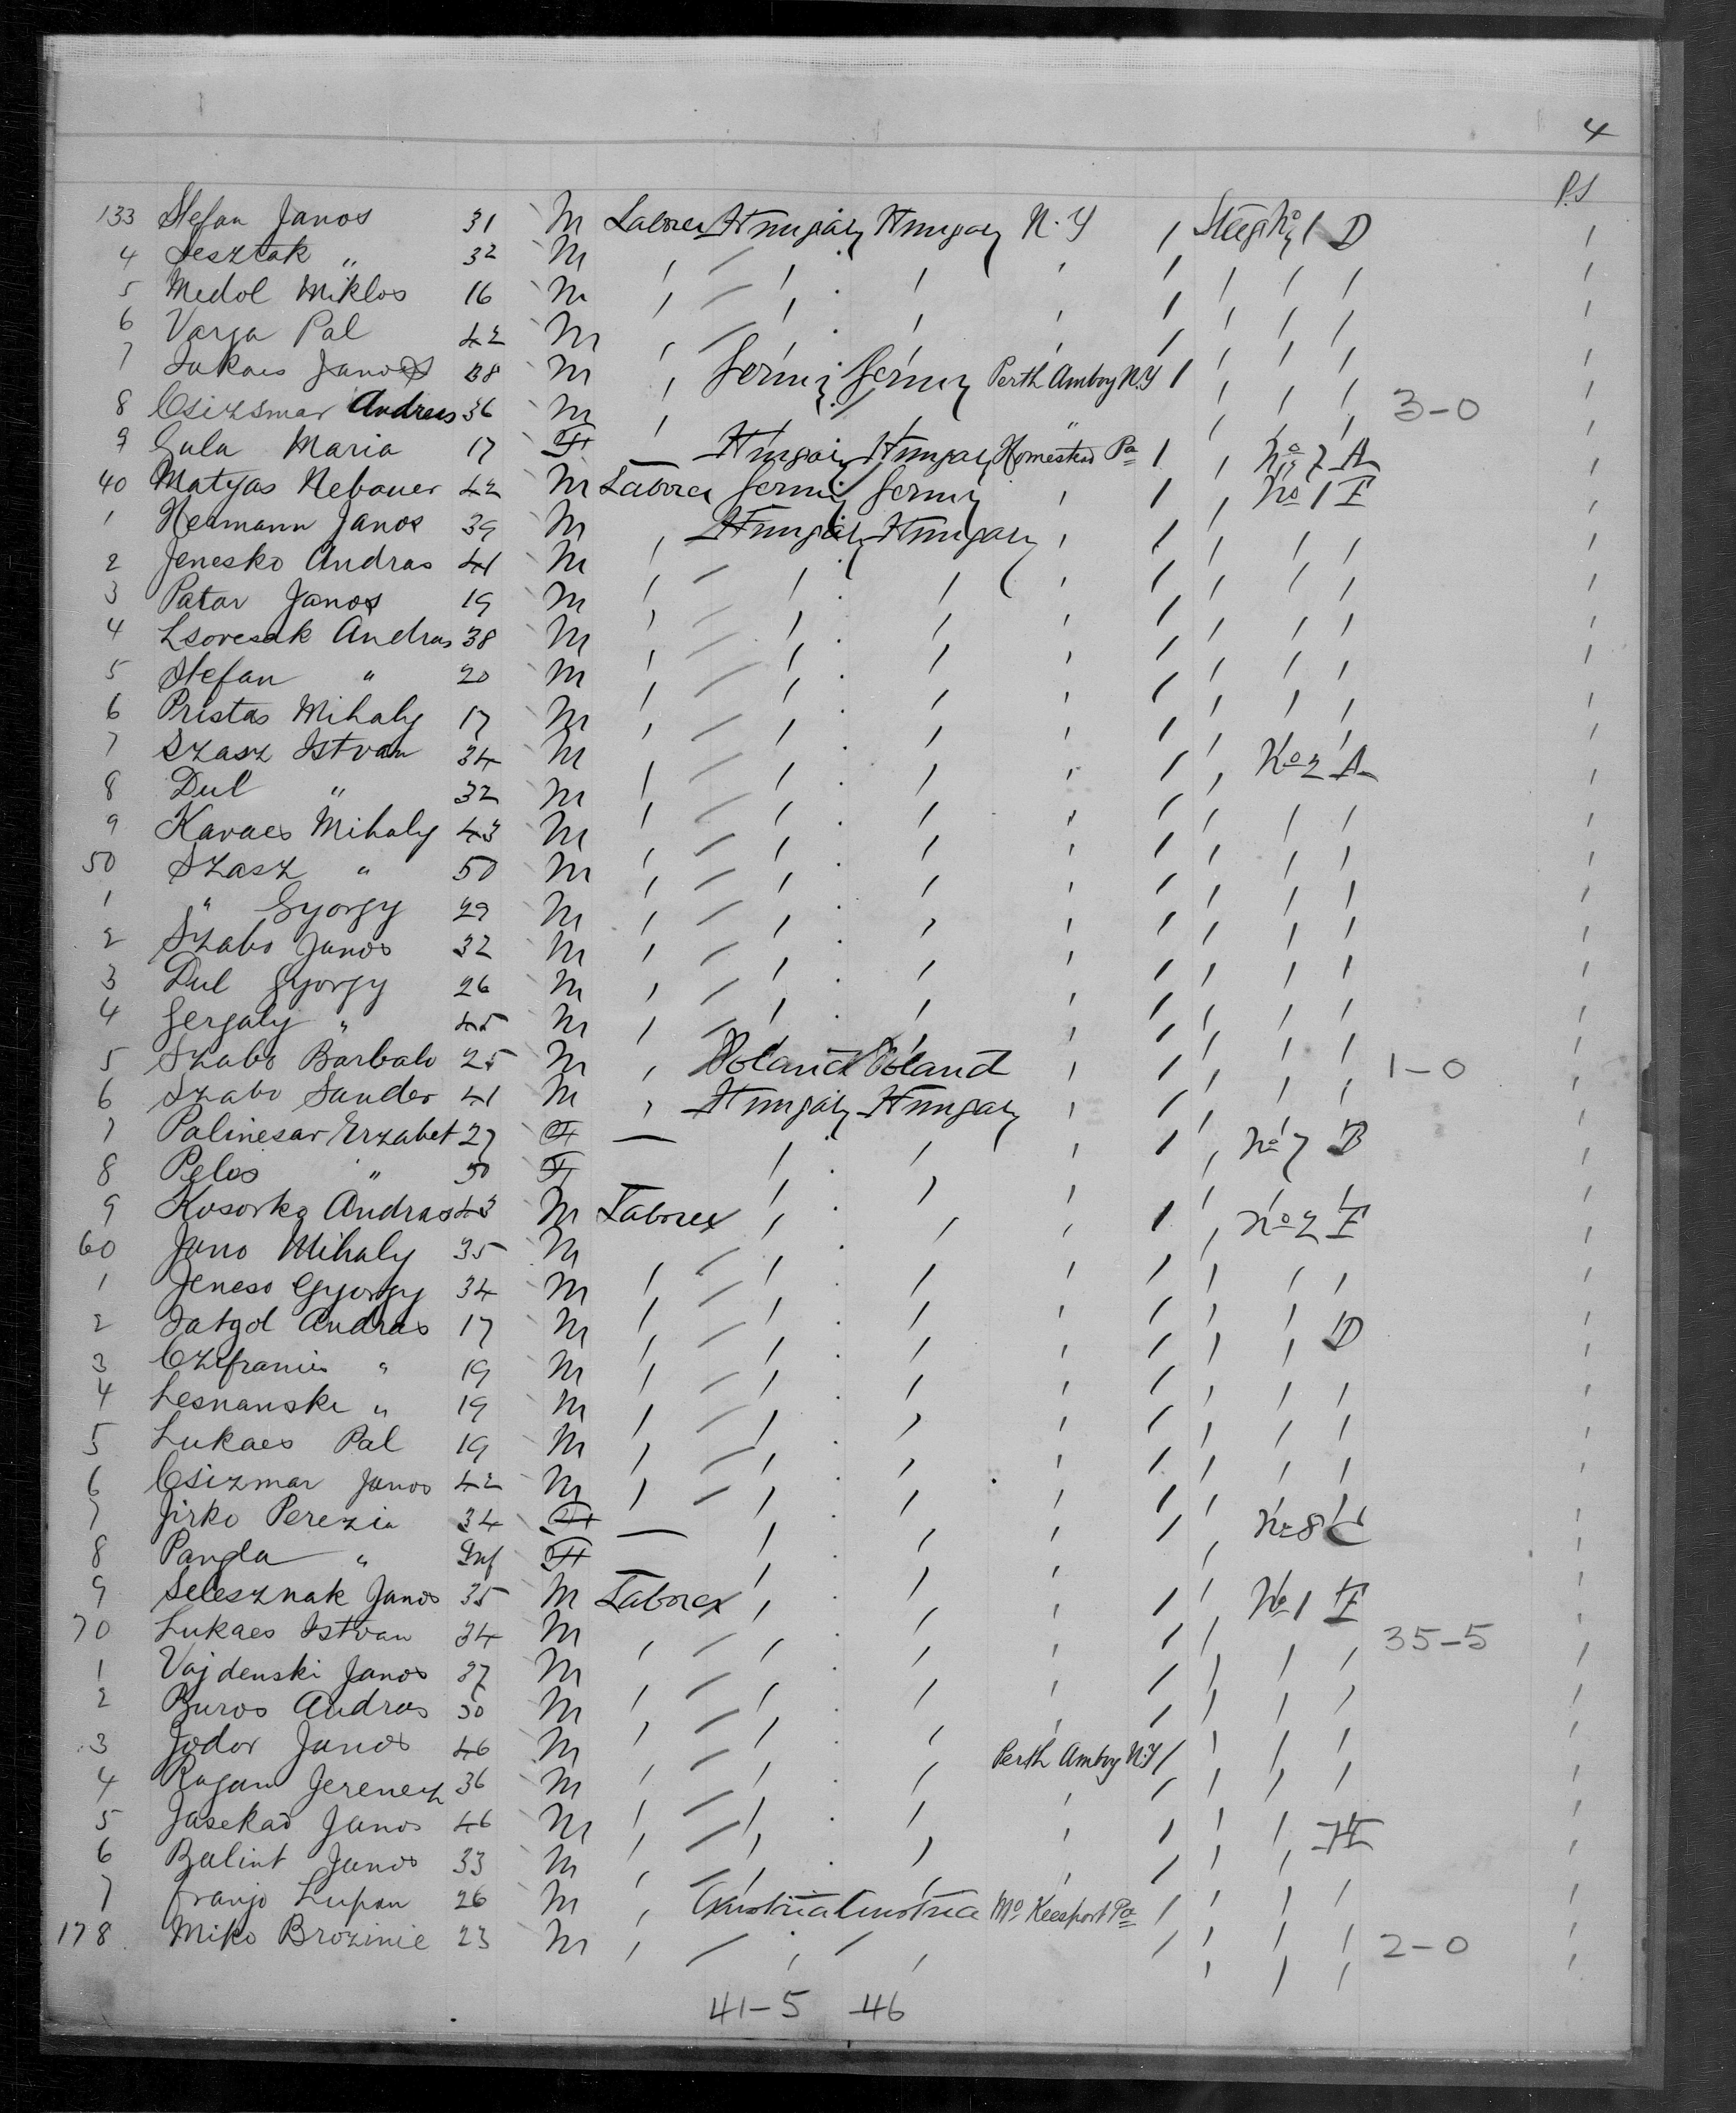 4
P.S
133 Stefan Janos 31 M Laborer Hungary Hungary N.Y / Steeg No 1 D /
4 Lesztak " 32 M / / / / / / / / / /
5 Medol Miklos 16 M / / / / / / / / / /
6 Varga Pal 42 M / / / / / / / / / /
7 Lukacs Janos 38 M / Germy Germy Perth Amboy N.Y / / / / /
8 Csizsmar Andreas 36 M / / / " / / / 3-0 /
9 Gula Maria 17 F — Hungary Hungary Homestead Pa / / No 7 A /
40 Matyas Nebauer 42 M Laborer Germy Germy / / / No 1 E /
1 Hermann Janos 39 M / Hungary Hungary / / / / / /
2 Jenesko Andras 41 M / / / / / / / / / /
3 Patar Janos 19 M / / / / / / / / / /
4 Lsovesak Andras 38 M / / / / / / / / / /
5 Stefan " 20 M / / / / / / / / / /
6 Pristas Mihaly 17 M / / / / / / / / / /
7 Szasz Istvan 34 M / / / / / / / No 2 A /
8 Dul " 32 M / / / / / / / / / /
9 Kavacs Mihaly 43 M / / / / / / / / / /
50 Szasz " 50 M / / / / / / / / / /
1 " Gyorgy 29 M / / / / / / / / / /
2 Szabo Janos 32 M / / / / / / / / / /
3 Dul Gyorgy 26 M / / / / / / / / / /
4 Gergaly " 45 M / / / / / / / / / /
5 Szabo Barbalo 25 M / Poland Poland / / / / / 1-0 /
6 Szabo Sandor 41 M / Hungary Hungary / / / / / /
7 Palinesar Erzabet 27 F — / / / / / No 7 B /
8 Pelos " 50 F / / / / / / /
9 Kosorka Andras 43 M Laborer / / / / / No 2 E /
60 Jano Mihaly 35 M / / / / / / / / / /
1 Jeneso Gyorgy 34 M / / / / / / / / / /
2 Tatgol Andras 17 M / / / / / / / / D /
3 Czifranics " 19 M / / / / / / / / / /
4 Lesnanski " 19 M / / / / / / / / / /
5 Lukaes Pal 19 M / / / / / / / / / /
6 Csizmar Janos 42 M / / / / / / / / / /
7 Jirko Perezia 34 F — / / / / / No 8 C /
8 Pangla " Inf F / / / / /
9 Selesznak Janos 35 M Laborer / / / / / No 1 E /
70 Lukaes Istvan 34 M / / / / / / / / / 35-5 /
1 Vajdenski Janos 37 M / / / / / / / / / /
2 Buros Andras 30 M / / / / / / / / / /
3 Jodor Janos 46 M / / / / Perth Amboy N.Y / / / / /
4 Ragan Jerenerz 36 M / / / / / / / / / /
5 Jasekad Janos 46 M / / / / / / / / H /
6 Balint Janos 33 M / / / / / / / / / /
7 Franjo Lupan 26 M / Austria Austria Mc Keesport Pa / / / / /
178 Miko Brozinie 23 M / / / / / / / / / 2-0 /
41-5 46